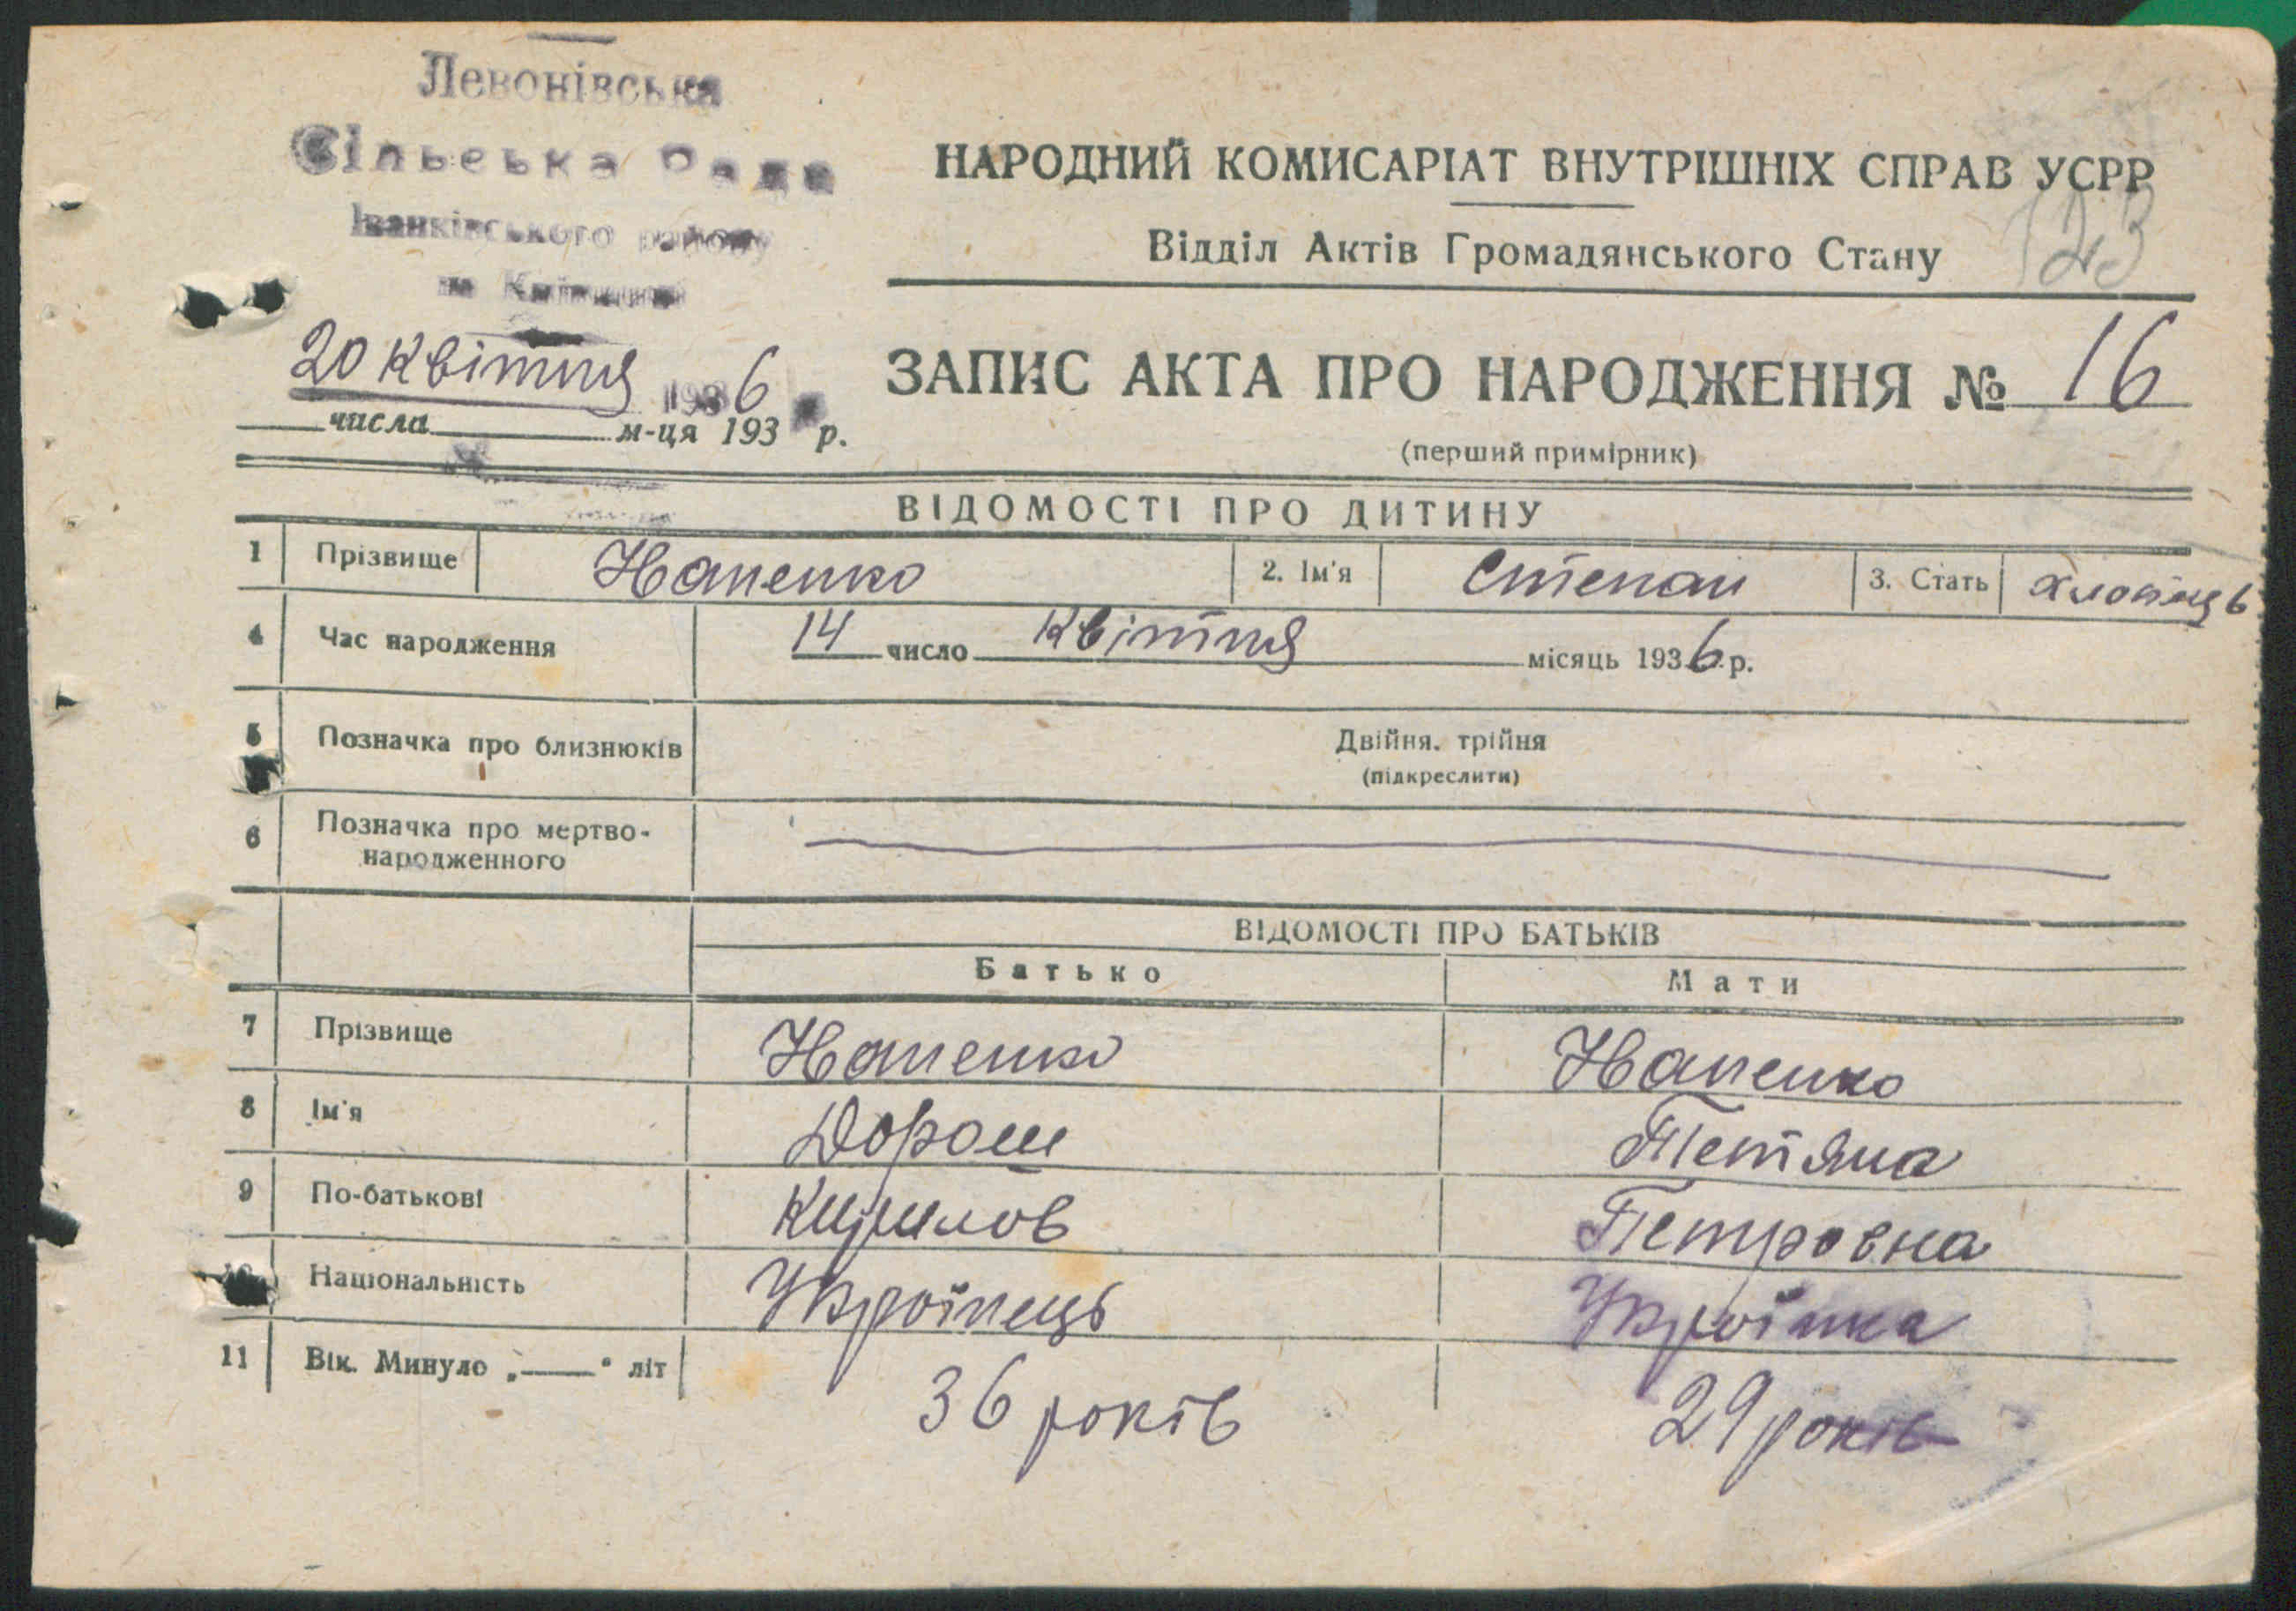 Левонівська
Сільська Рада
Іванківського району
на Київщині
НАРОДНИЙ КОМИСАРІАТ ВНУТРІШНІХ СПРАВ УСРР
Відділ Актів Громадянського Стану
123
20 квітня 1936
числа м-ця 193 р.
ЗАПИС АКТА ПРО НАРОДЖЕННЯ № 16
(перший примірник)
ВІДОМОСТІ ПРО ДИТИНУ
1 Прізвище Напенко 2. Ім'я Степан 3. Стать хлопець
4 Час народження 14 число квітня місяць 1936 р.
5 Позначка про близнюків Двійня, трійня
(підкреслити)
6 Позначка про мертво-
народженного
ВІДОМОСТІ ПРО БАТЬКІВ
Батько Мати
7 Прізвище Напенко Напенко
8 Ім'я Дорош Тетяна
9 По-батькові Кирилов Петровна
10 Національність Українець Українка
11 Вік. Минуло „——“ літ 36 років 29 років